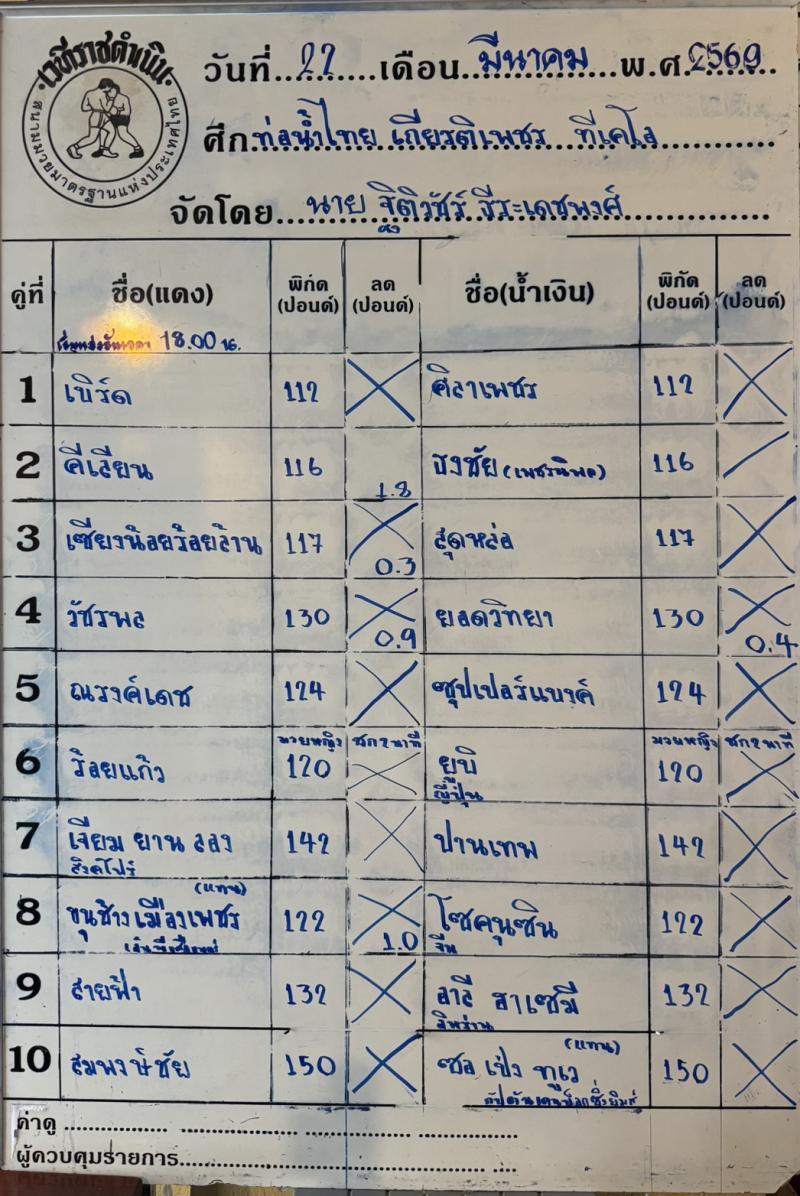 เวทีราชดำเนิน
สนามมวยมาตรฐานแห่งประเทศไทย
วันที่..22......เดือน..มีนาคม...พ.ศ.2569..
ศึก.ท่อน้ำไทย เกียรติเพชร ทีเคโอ...........
จัดโดย...นาย ฐิติวัชร์ ธีระเดชพงศ์...............
คู่ที่ ชื่อ(แดง) พิกัด (ปอนด์) ลด (ปอนด์) ชื่อ(น้ำเงิน) พิกัด (ปอนด์) ลด (ปอนด์)
18.00 น.
1 เบิร์ด 112 ศิลาเพชร 112
2 คีเลียน 116 1.8 ธงชัย 116
3 เซียงน้อยร้อยล้าน 117 0.3 สุดหล่อ 117
4 วัชรพล 130 0.9 ยอดวิทยา 130 0.4
5 ณรงค์เดช 124 ซุปเปอร์แบงค์ 124
มวยหญิง ชก 2 นาที มวยหญิง ชก 2 นาที
6 ร้อยแก้ว 120 ยูบิ 120
ญี่ปุ่น
7 เจียม ยาน ลอง 142 ปานเทพ 142
สิงคโปร์
(แทน)
8 ขุนช้าง เมืองเพชร 122 1.0 โซคุนซิน 122
จีน
9 สายฟ้า 132 อาลี ฮาเซมี 132
อิหร่าน
(แทน)
10 สมพงษ์ชัย 150 ซอ เป่ง ทูเว 150
ค่าดู ..................
ผู้ควบคุมรายการ..................